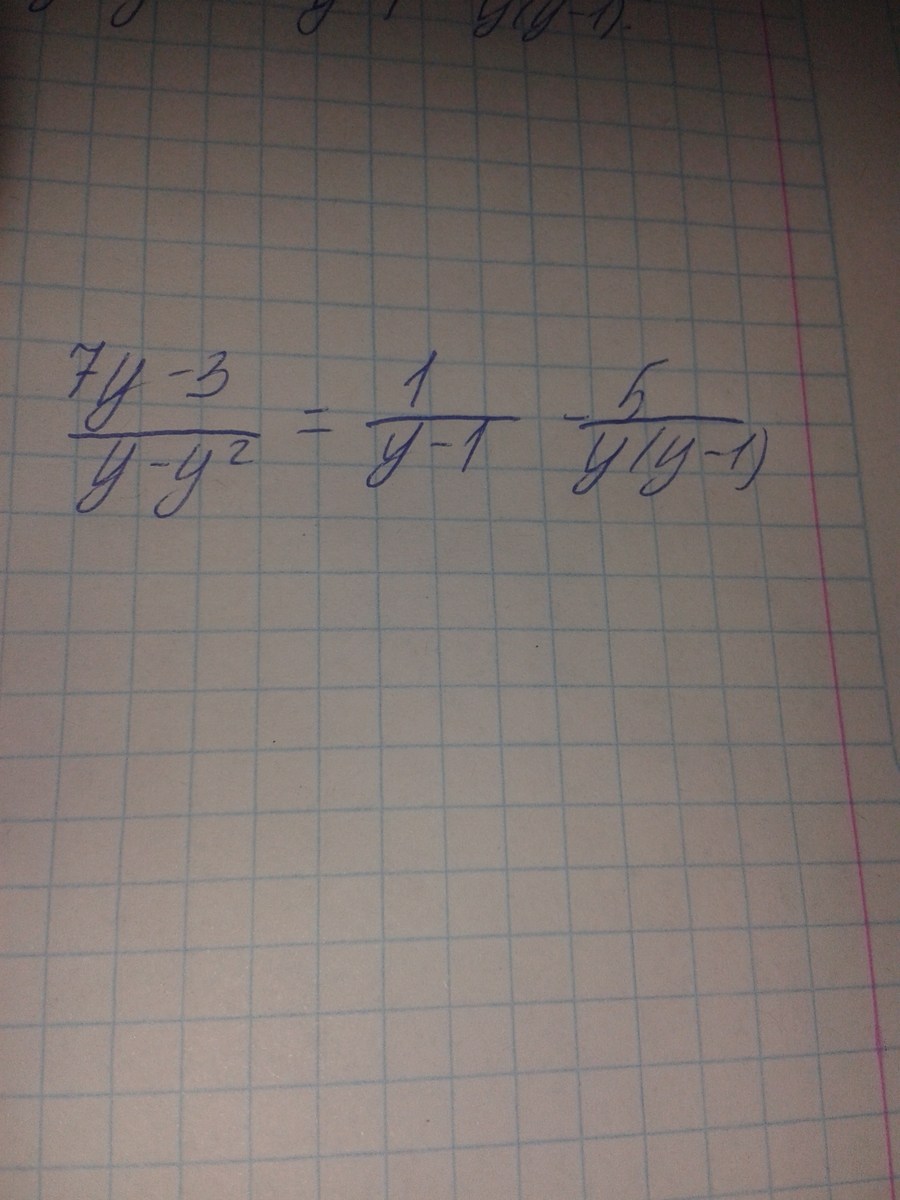 y(y-1).
7y-3/y-y² = 1/y-1 - 5/y(y-1)